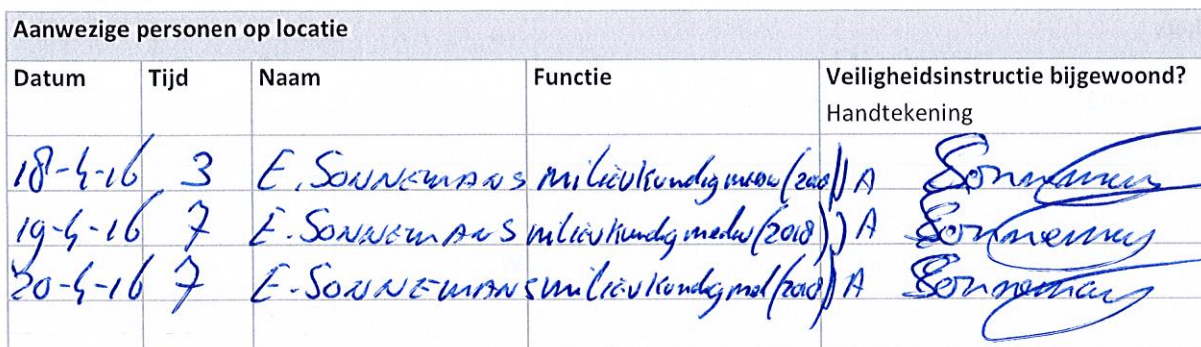 Aanwezige personen op locatie
Datum Tijd Naam Functie Veiligheidsinstructie bijgewoond?
Handtekening
18-4-16 3 E. SONNEMANS milieukundig medew (2018) JA Sonnemans
19-4-16 7 E. SONNEMANS milieukundig medew (2018) JA Sonnemans
20-4-16 7 E. SONNEMANS milieukundig med (2018) JA Sonnemans